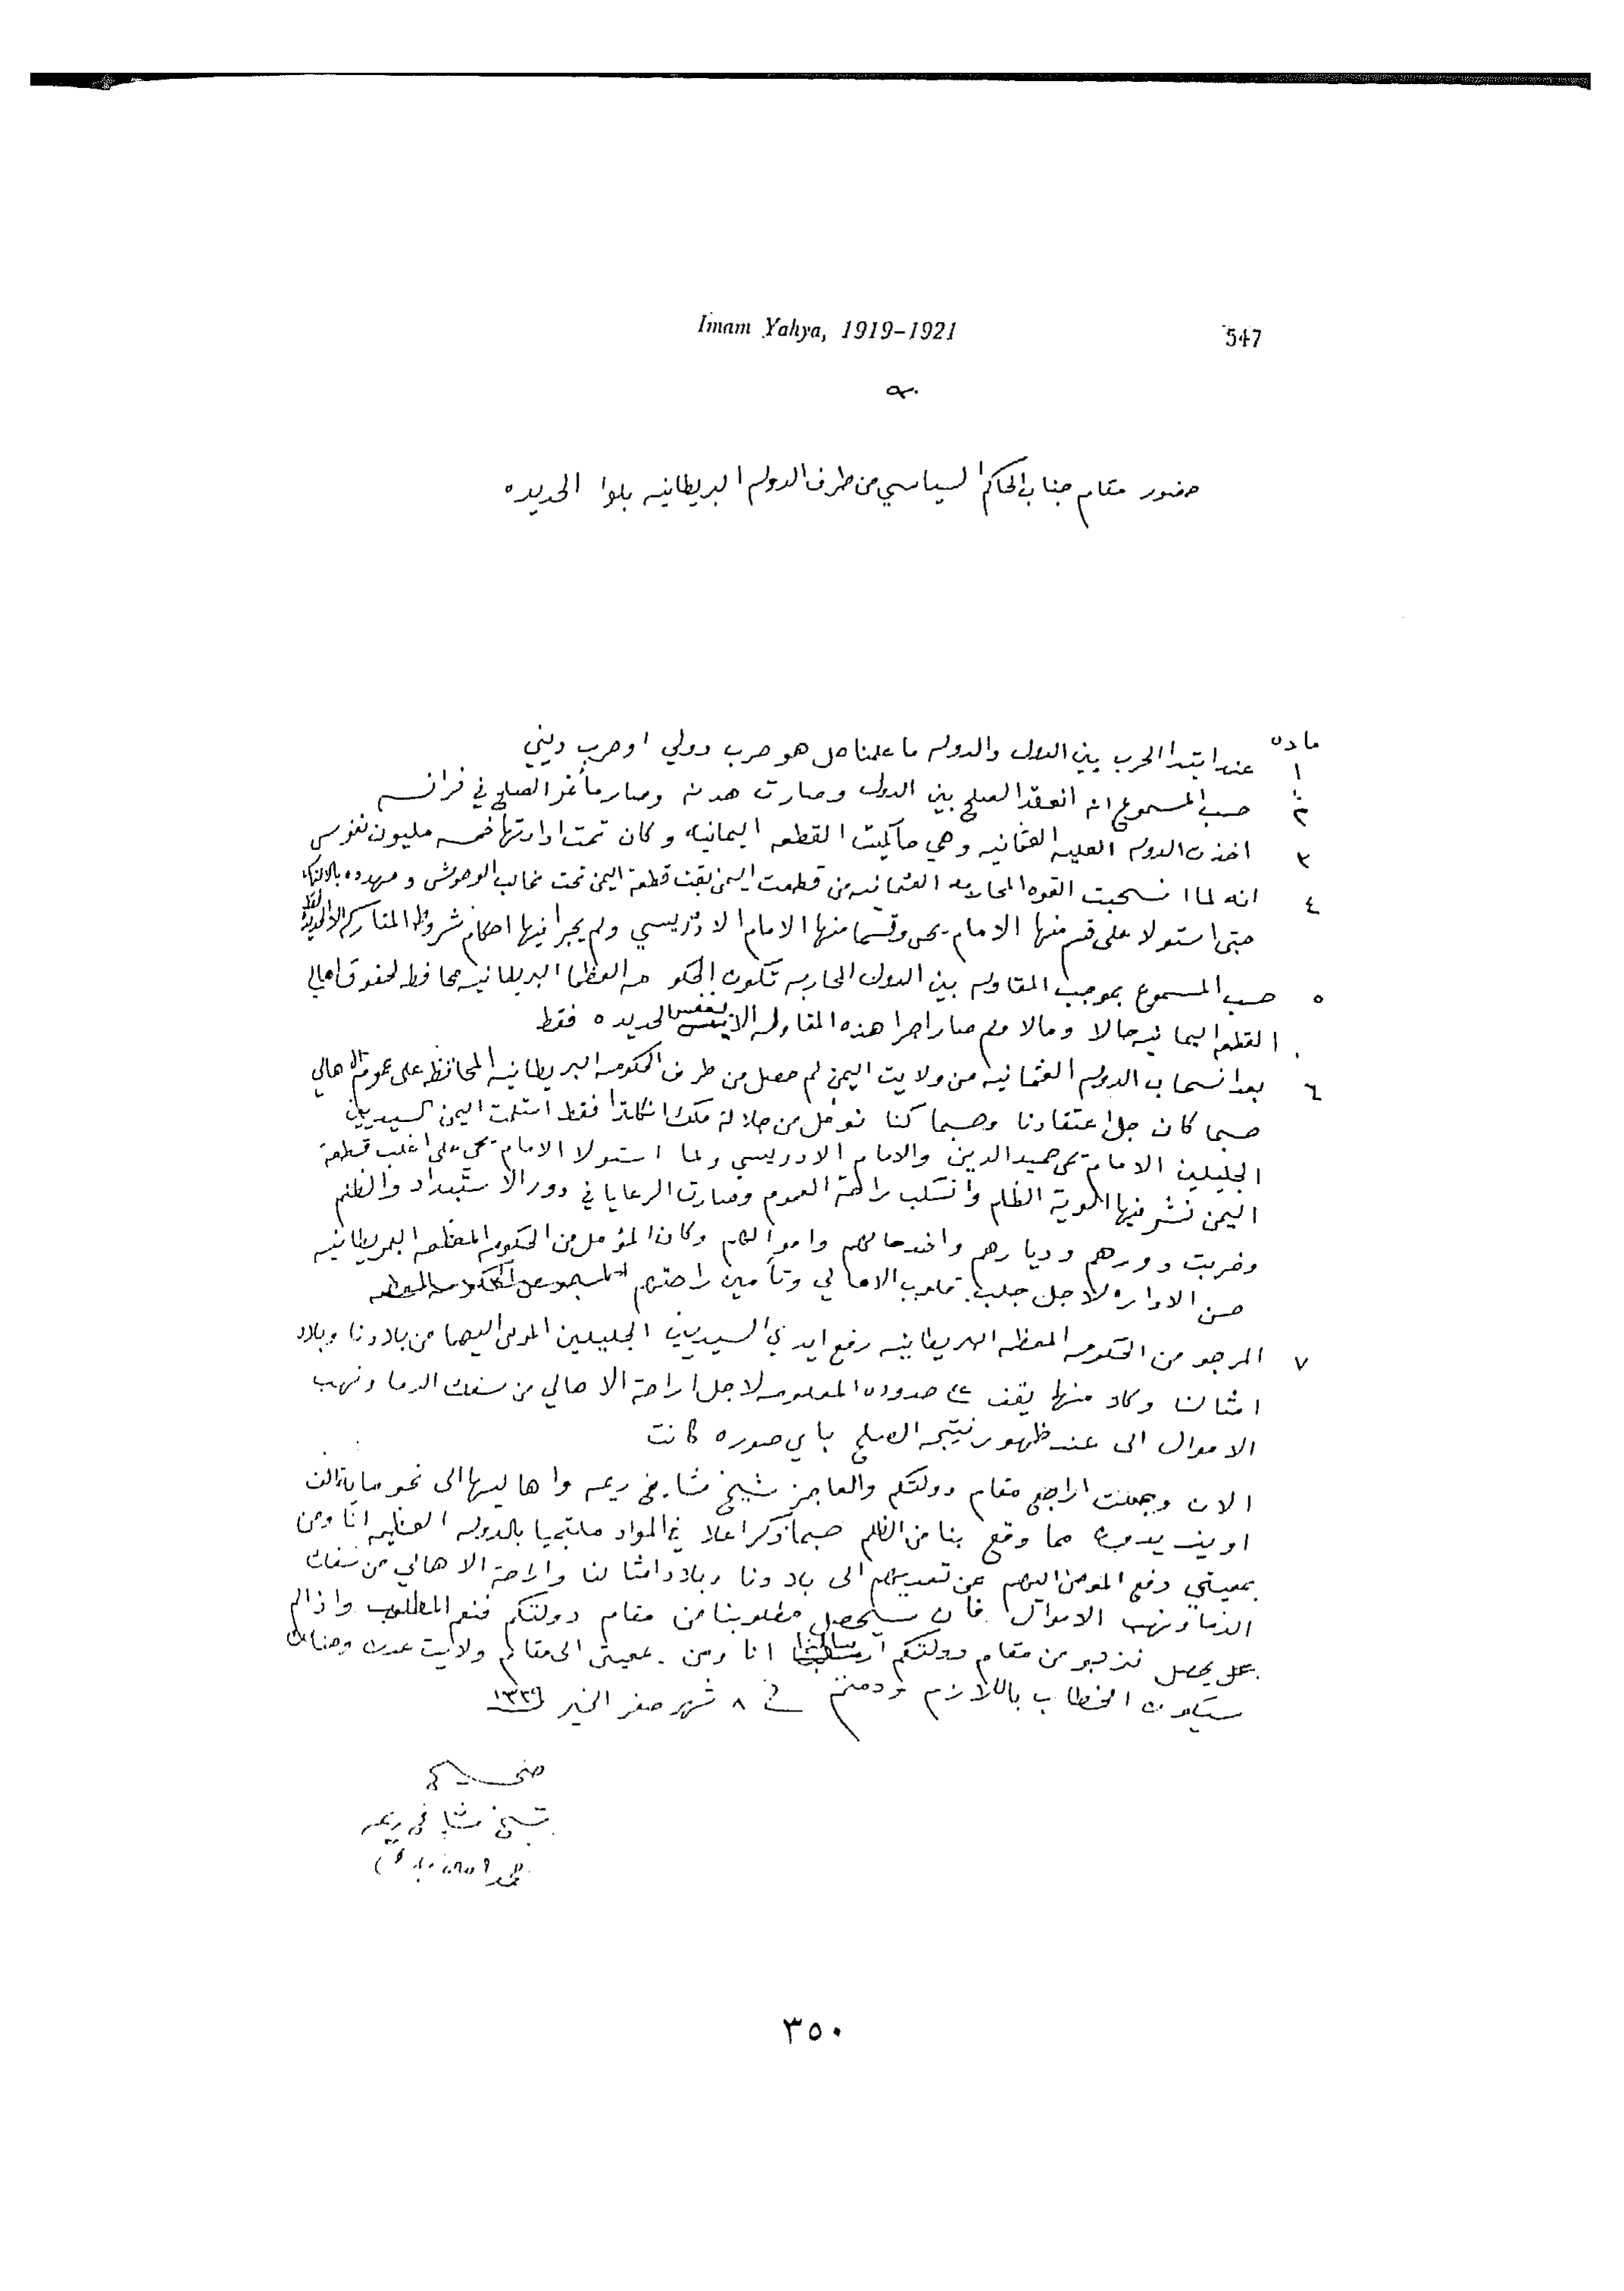 Imam Yahya, 1919–1921
547
حضور مقام جناب الحاكم السياسي من طرف الدوله البريطانيه بلوا الحديده
ماده
١ عند ابتدا الحرب بين الدول والدوله ما علمنا هل هو حرب دولي او حرب ديني
٢ حسب المسموع انه انعقد الصلح بين الدول وصارت هدنه وصار الصلح في فرانسه
٣ اخذت الدوله العليه العثمانيه وهي حاكميت القطعه اليمانيه وكان تحت ادارتها خمسه مليون نفوس
٤ انه لما انسحبت القوه المحاربه العثمانيه من قطعت اليمن بقت قطعة اليمن تحت مخالب الوحوش ومهدده
حتى استولا على قسم منها الامام يحيى وقسما منها الامام الادريسي ولم يجرا فيها احكام شروط المتاركه الا الحديده فقط
٥ حسب المسموع بموجب المقاوله بين الدول المحاربه تكون الحكومه العظما البريطانيه محافظه لحقوق اهالي
القطعه اليمانيه حالا ومالا ولم صار اجرا هذه المقاوله الا بنفس الحديده فقط
٦ بعد انسحاب الدوله العثمانيه من ولايت اليمن لم حصل من طرف الحكومه البريطانيه المحافظه على عموم الاهالي
حسبما كان جل اعتقادنا وحسبما كنا نومل من جلالة ملك انكلترا فقط استلمت اليمن السيديين
الجليلين الامام يحيى حميد الدين والامام الادريسي ولما استولا الامام يحيى على اغلب قطعة
اليمن نشر فيها الوية الظلم وانسلب راحة العموم وصارت الرعايا في دور الاستبداد والظلم
وخربت دورهم وديارهم واخذ حالهم واموالهم وكان المؤمل من الحكومه المعظمه البريطانيه
حسن الاداره لاجل جلب قلوب الاهالي وتأمين راحتهم
٧ المرجو من الحكومه المعظمه البريطانيه رفع ايدي السيديين الجليلين المومى اليهما من بلادنا وبلاد
امثالنا وكلا منها يقف على حدوده المعلومه لاجل راحة الاهالي من سفك الدما ونهب
الاموال الى عند ظهور نتيجه الصلح باي صوره كانت
الان وجعلت اراجع مقام دولتكم والعاجز شيخ مشايخ ريمه واهاليها الى نحو ماية الف
مما وقع بنا من الظلم حسبما ذكر اعلا في المواد ملتجيا بالدوله العظيمه انا ومن
بمعيتي رفع المومى اليهم عن تعديهم الى بلادنا وبلاد امثالنا واراحة الاهالي من سفك
الدما ونهب الاموال فان سيحصل مطلوبنا من مقام دولتكم فنعم المطلوب واذا لم
يحصل نرجو من مقام دولتكم ارسالنا انا ومن بمعيتي الى مقام ولايت عدن وهناك
سيكون الخطاب باللازم ودمتم في ٨ شهر صفر الخير ١٣٣٩
شيخ مشايخ ريمه
٣٥٠